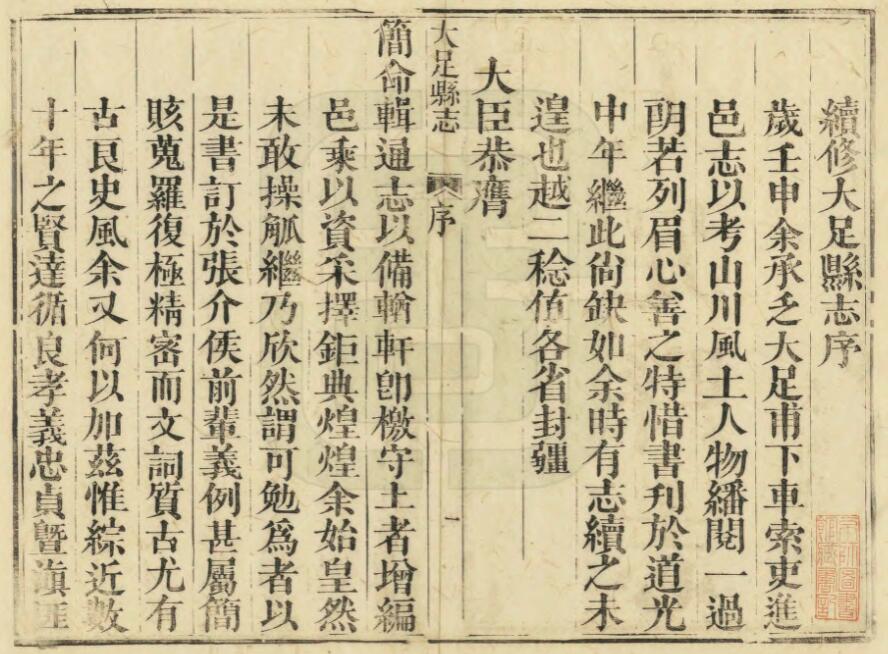 續修大足縣志序
歲壬申余承乏大足甫下車索吏進
邑志以考山川風土人物繙閱一過
朗若列眉心善之特惜書刋於道光
中年繼此尙缺如余時有志續之未
遑也越二稔値各省封疆
大臣恭膺
大足縣志 序 一
簡命輯通志以備輶軒卽檄守土者增編
邑乘以資采擇鉅典煌煌余始皇然
未敢操觚繼乃欣然謂可勉爲者以
是書訂於張介侯前輩義例甚屬簡
賅蒐羅復極精密而文詞質古尤有
古良史風余又何以加茲惟綜近數
十年之賢達循良孝義忠貞曁滇匪